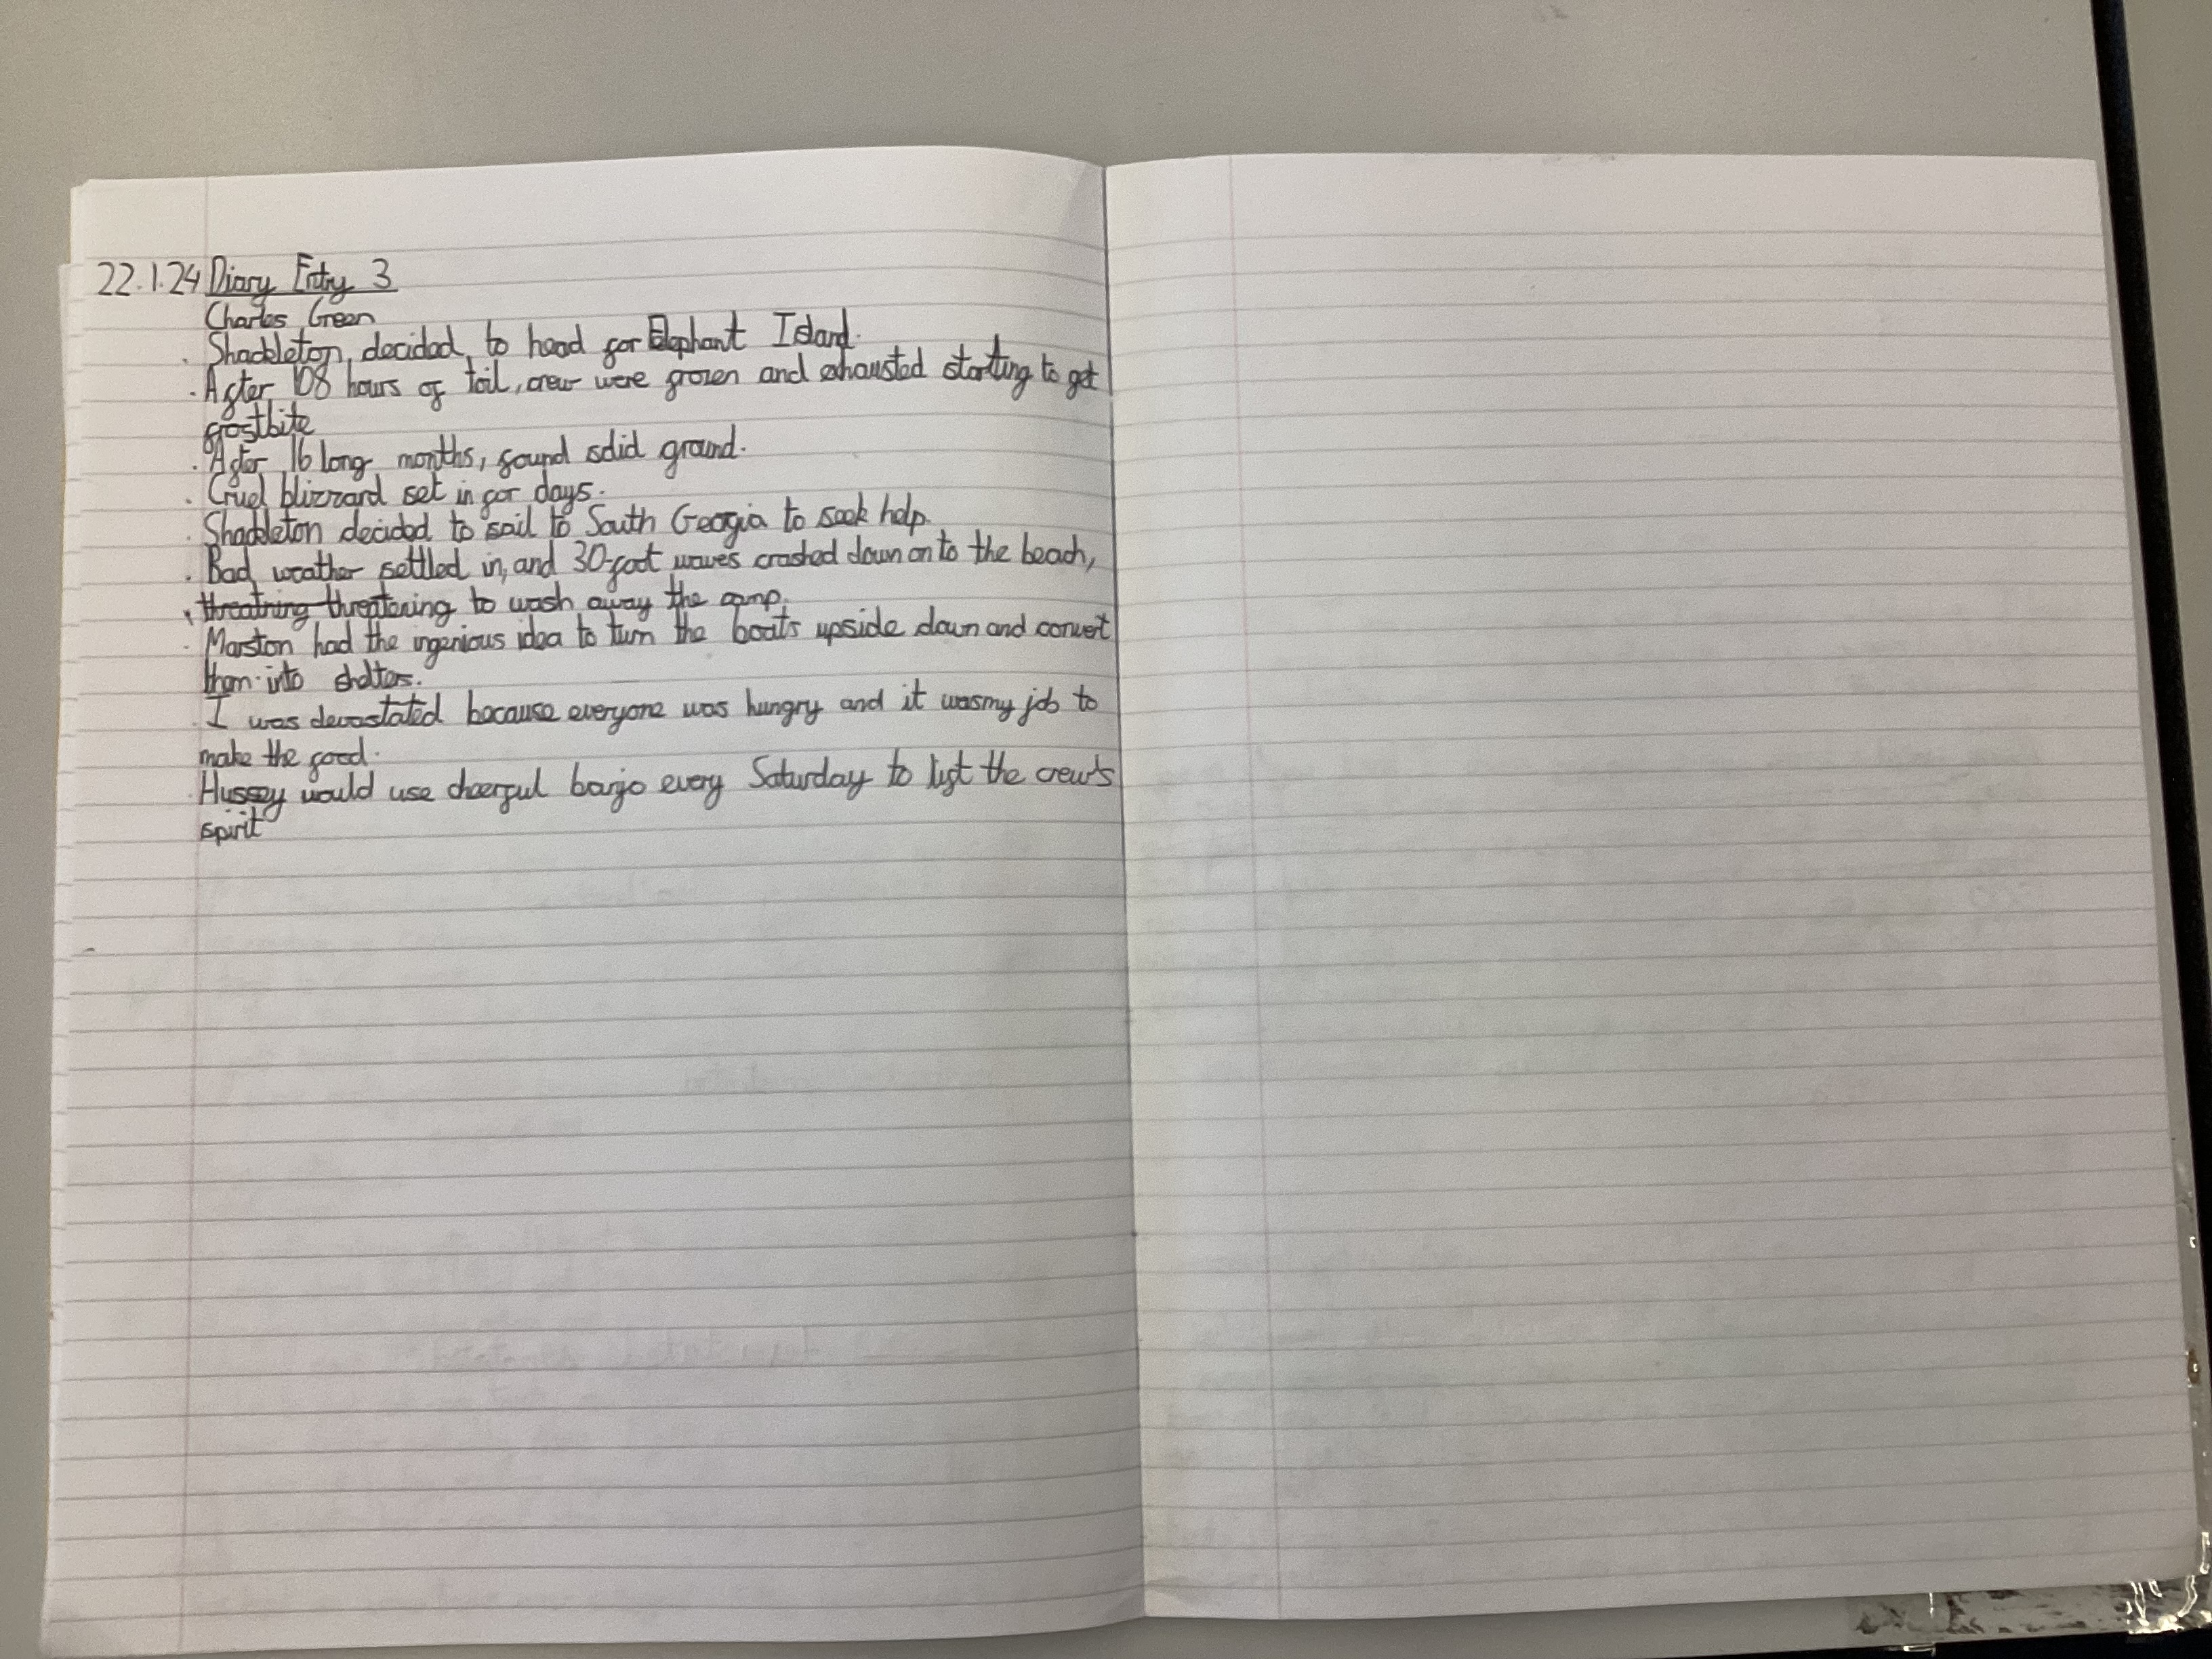 22.1.24 Diary Entry 3
Charles Green
· Shackleton decided to head for Elephant Island.
· After 108 hours of toil, crew were frozen and exhausted starting to get
frostbite
· After 16 long months, found solid ground.
· Cruel blizzard set in for days.
· Shackleton decided to sail to South Georgia to seek help.
· Bad weather settled in, and 30-foot waves crashed down onto the beach,
threatning threatening to wash away the camp.
· Marston had the ingenious idea to turn the boats upside down and convert
them into shelters.
· I was devastated because everyone was hungry and it was my job to
make the food.
· Hussey would use cheerful banjo every Saturday to lift the crew's
spirit